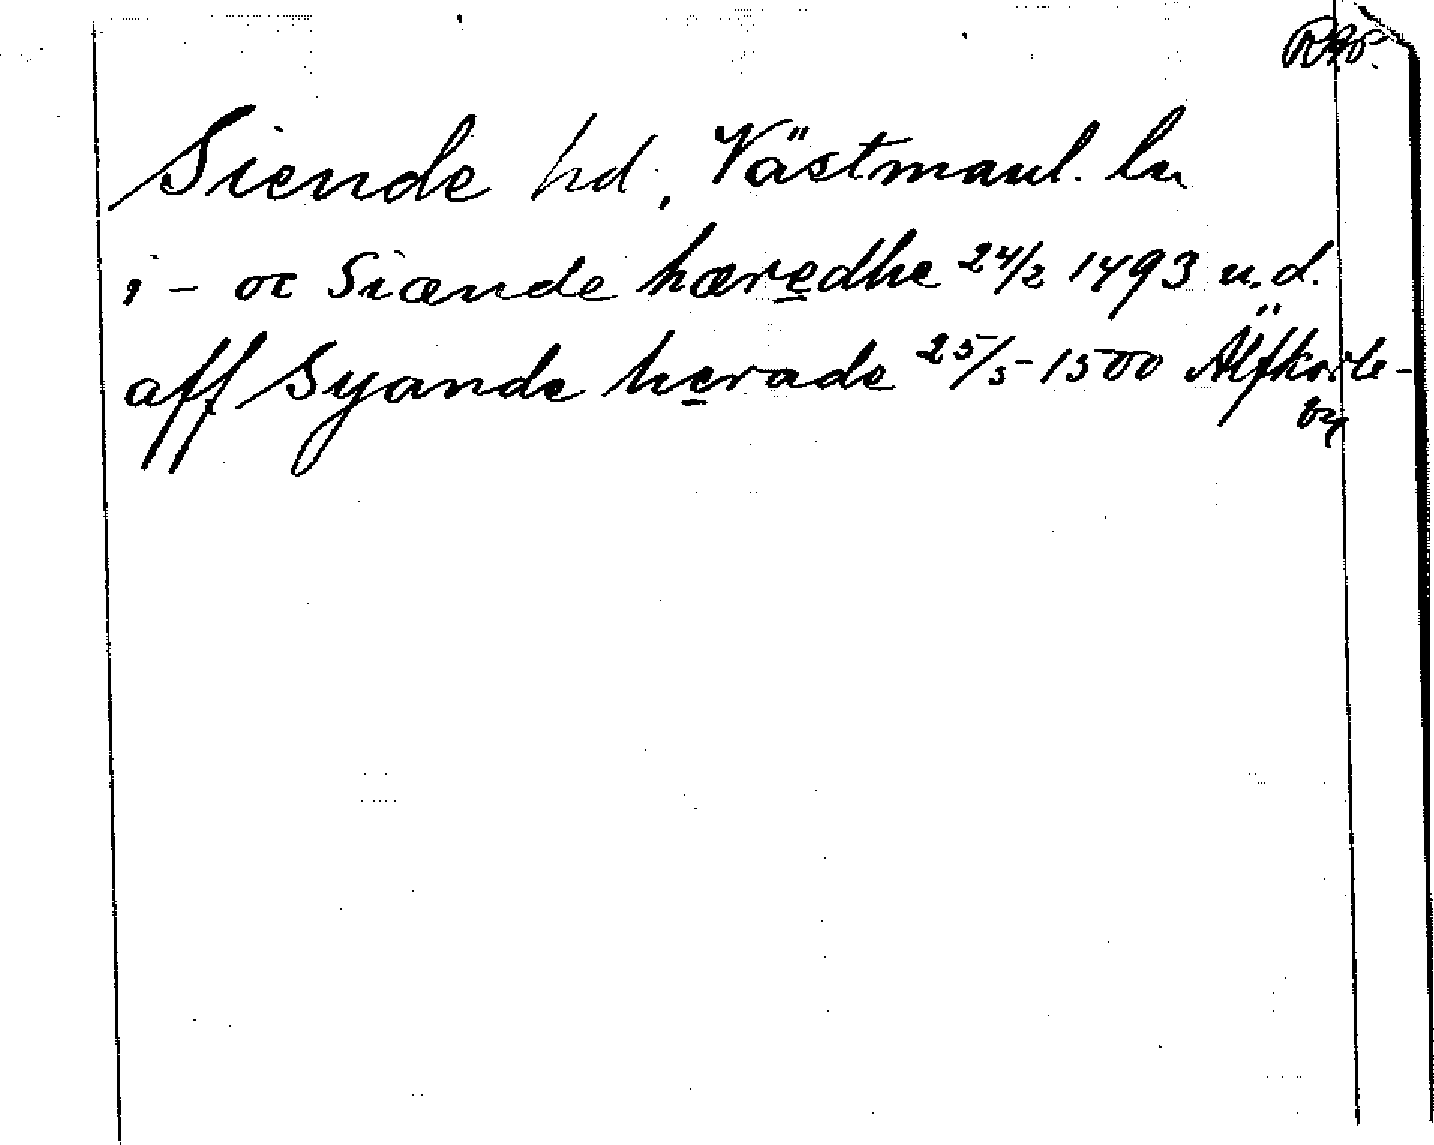 Siende hd, Västmanl. ln
i - oc Siænde hæredhe 24/2 1493 u.d.
aff Syande herade 25/5 1500 Älfkarle-
by